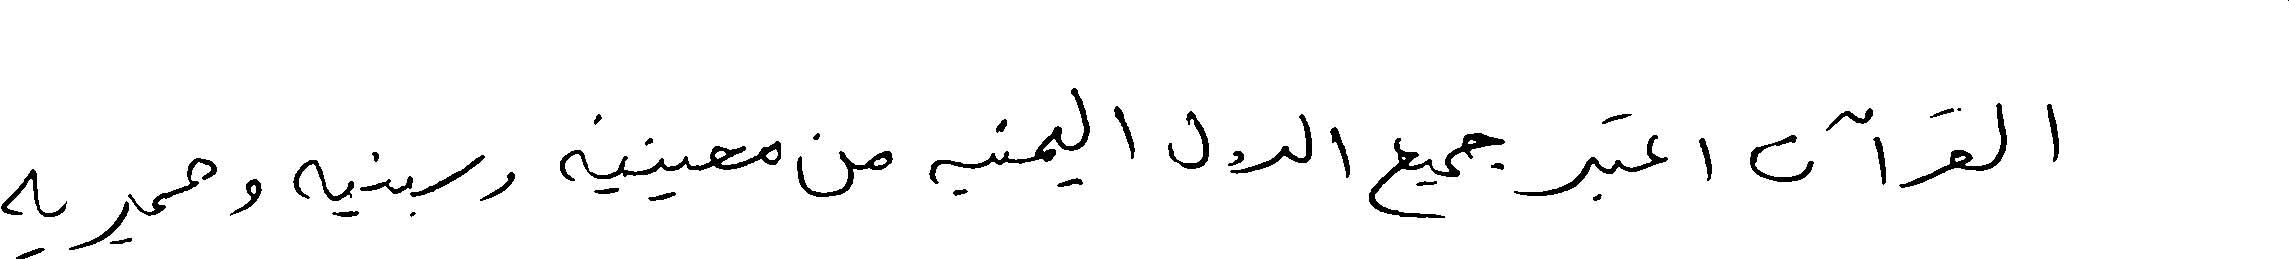 القرآن اعتبر جميع الدول اليمنيه من معينيه وسبئيه وحميريه